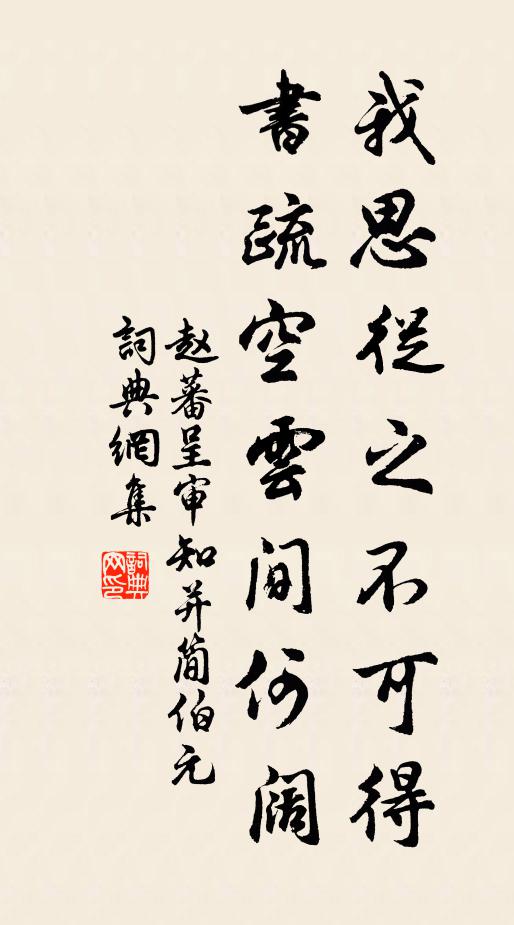 我思從之不可得
書疏空雲間何闊
赵蕃呈审知并简伯元
詞典網集
詞典网印